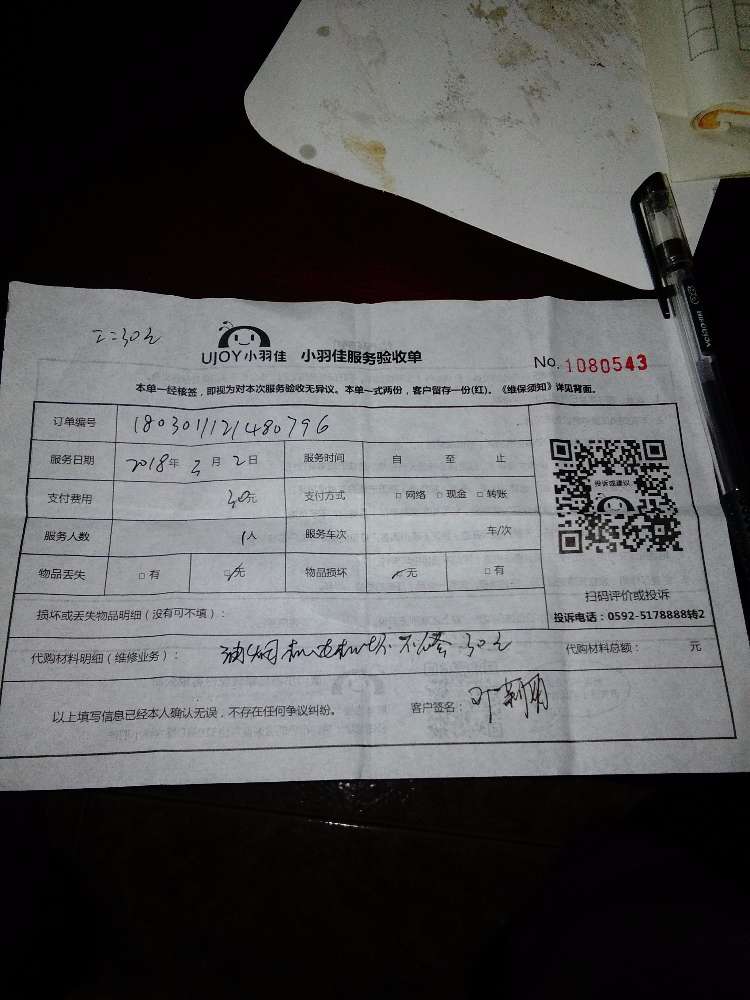 UJOY小羽佳 小羽佳服务验收单 No. 1080543
本单一经核签，即视为对本次服务验收无异议。本单一式两份，客户留存一份(红)。《维保须知》详见背面。
订单编号 180301121480796
服务日期 2018年3月2日 服务时间 自 至 止
支付费用 30元 支付方式 □网络 □现金 □转账
投诉或建议
服务人数 1人 服务车次 车/次
物品丢失 □有 □无 物品损坏 □无 □有
扫码评价或投诉
损坏或丢失物品明细（没有可不填）：
投诉电话：0592-5178888转2
代购材料明细（维修业务）： 油烟机电机坏 不修 30元 代购材料总额： 元
以上填写信息已经本人确认无误，不存在任何争议纠纷。 客户签名：